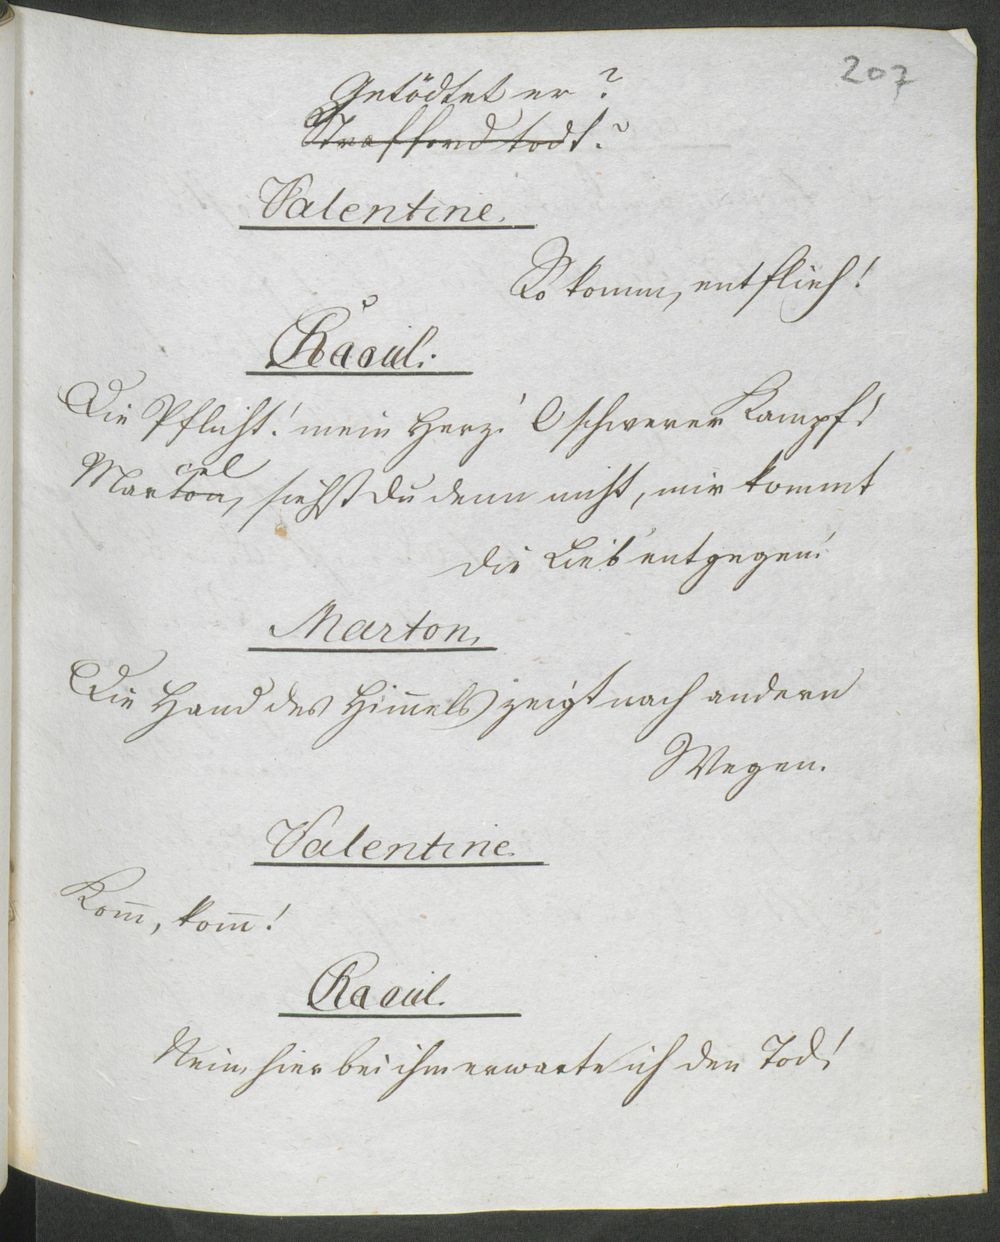 207
Getödtet er?
Strafford todt?
Valentine.
So komm, entflieh!
Raoul.
Die Pflicht! mein Herz! O schwerer Kampf!
Marcel
Marton, siehst du denn nicht, mir kommt
die Lieb' entgegen!
Marton.
Die Hand des Him̅els zeigt nach andern
Wegen.
Valentine.
Kom̅, kom̅!
Raoul.
Nein, hier bei ihm erwarte ich den Tod!